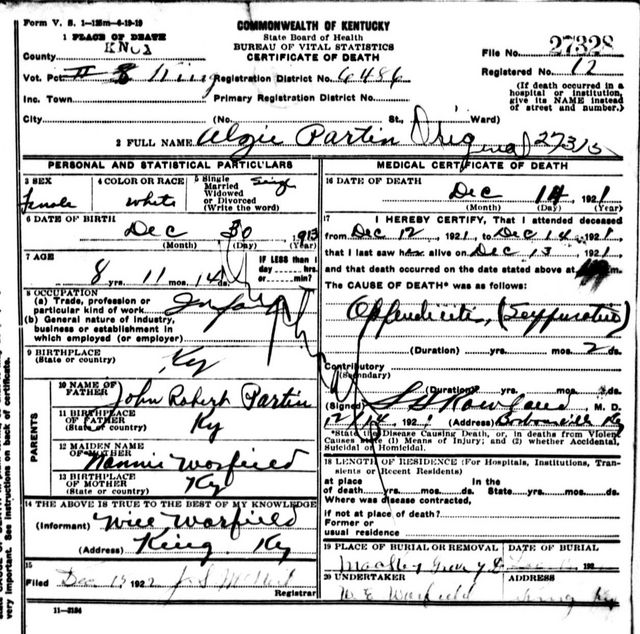 Form V. S. 1-125m-6-19-19
COMMONWEALTH OF KENTUCKY
State Board of Health
BUREAU OF VITAL STATISTICS
CERTIFICATE OF DEATH
1 PLACE OF DEATH
County Knox
File No. 27328
Vot. Pct. King Registration District No. 6486
Registered No. 12
Inc. Town Primary Registration District No.
(If death occurred in a hospital or institution, give its NAME instead of street and number.)
City (No. St., Ward)
2 FULL NAME Algie Partin Original 27313
PERSONAL AND STATISTICAL PARTICULARS
3 SEX
Female
4 COLOR OR RACE
White
5 Single
Married
Widowed
or Divorced
(Write the word)
Single
6 DATE OF BIRTH
Dec 30 1913
(Month) (Day) (Year)
7 AGE
8 yrs. 11 mos. 14 ds.
IF LESS than 1
day hrs.
or min.?
8 OCCUPATION
(a) Trade, profession or
particular kind of work
(b) General nature of industry,
business or establishment in
which employed (or employer)
9 BIRTHPLACE
(State or country) Ky
PARENTS
10 NAME OF
FATHER John Robert Partin
11 BIRTHPLACE
OF FATHER
(State or country) Ky
12 MAIDEN NAME
OF MOTHER
Nannie Warfield
13 BIRTHPLACE
OF MOTHER
(State or country) Ky
14 THE ABOVE IS TRUE TO THE BEST OF MY KNOWLEDGE
(Informant) Will Warfield
(Address) King Ky
15
Filed Dec 192
Registrar
11-3184
MEDICAL CERTIFICATE OF DEATH
16 DATE OF DEATH
Dec 14 1921
(Month) (Day) (Year)
17 I HEREBY CERTIFY, That I attended deceased
from Dec 12 1921, to Dec 14 1921
that I last saw h alive on Dec 13 1921
and that death occurred on the date stated above at m.
The CAUSE OF DEATH* was as follows:
Appendicitis, (Suppurative)
(Duration) yrs. mos. 2 ds.
Contributory
(Secondary)
(Duration) yrs. mos. ds.
(Signed) Rowland M. D.
12/14 192 (Address) Barbourville Ky
*State the Disease Causing Death, or, in deaths from Violent
Causes state (1) Means of Injury; and (2) whether Accidental,
Suicidal or Homicidal.
18 LENGTH OF RESIDENCE (For Hospitals, Institutions, Transients or Recent Residents)
at place of death yrs. mos. ds. In the State yrs. mos. ds.
Where was disease contracted,
if not at place of death?
Former or
usual residence
19 PLACE OF BURIAL OR REMOVAL
DATE OF BURIAL
192
20 UNDERTAKER
W. E. Warfield
King Ky
very important. See instructions on back of certificate.